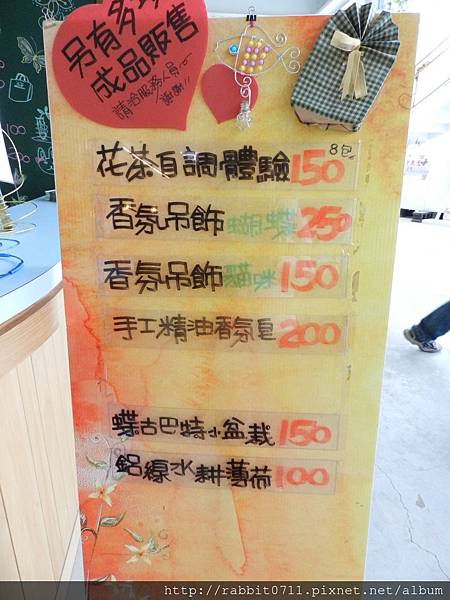 另有多
成品販售
請洽服務人員
謝謝!!
8包
花茶自調體驗150
香氛吊飾蝴蝶250
香氛吊飾貓咪150
手工精油香氛皂200
蝶古巴特小盆栽150
鋁線水耕薄荷100
http://rabbit0711.pixnet.net/album